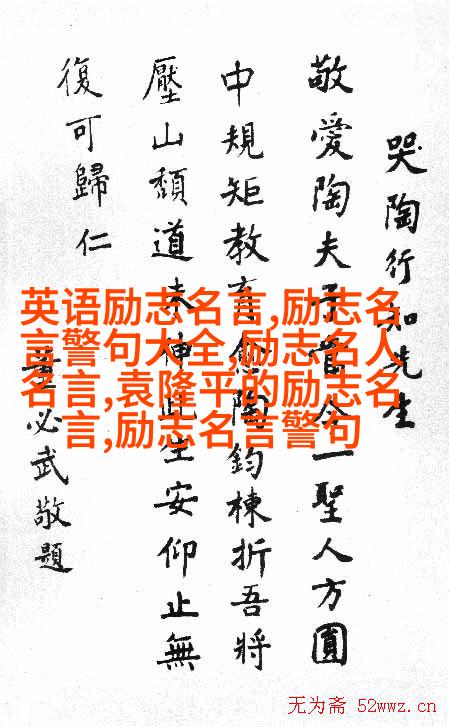 哭陶行知先生
敬愛陶夫子當今一聖人方圓
中規矩教育愈陶鈞棟折吾將
壓山頹道未伸此生安仰止無
復可歸仁
董必武敬題
英语励志名言,励志名
言警句大全,励志名人
名言,袁隆平的励志名
言,励志名言警句
无为斋 52wwz.cn